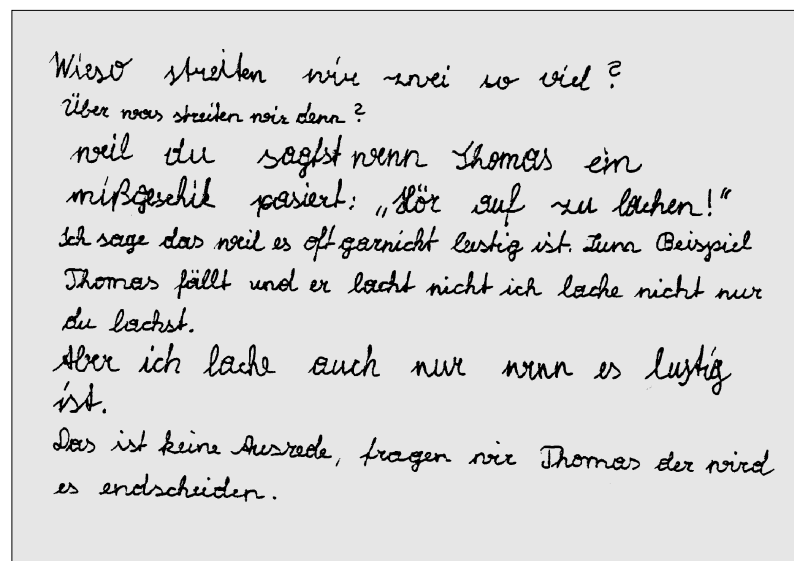 Wieso streiten wir zwei so viel?
Über was streiten wir denn?
weil du sagst wenn Thomas ein
mißgeschik pasiert: „Hör auf zu lachen!“
Ich sage das weil es oft garnicht lustig ist. Zum Beispiel
Thomas fällt und er lacht nicht ich lache nicht nur
du lachst.
Aber ich lache auch nur wenn es lustig
ist.
Das ist keine Ausrede, fragen wir Thomas der wird
es endscheiden.